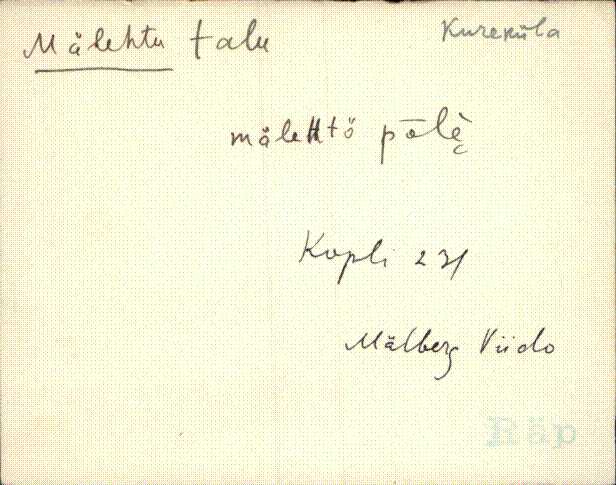 Mälehtu talu
Kureküla
mälehtö pōlè̬
Kopli 231
Mälberg Viido
Räp